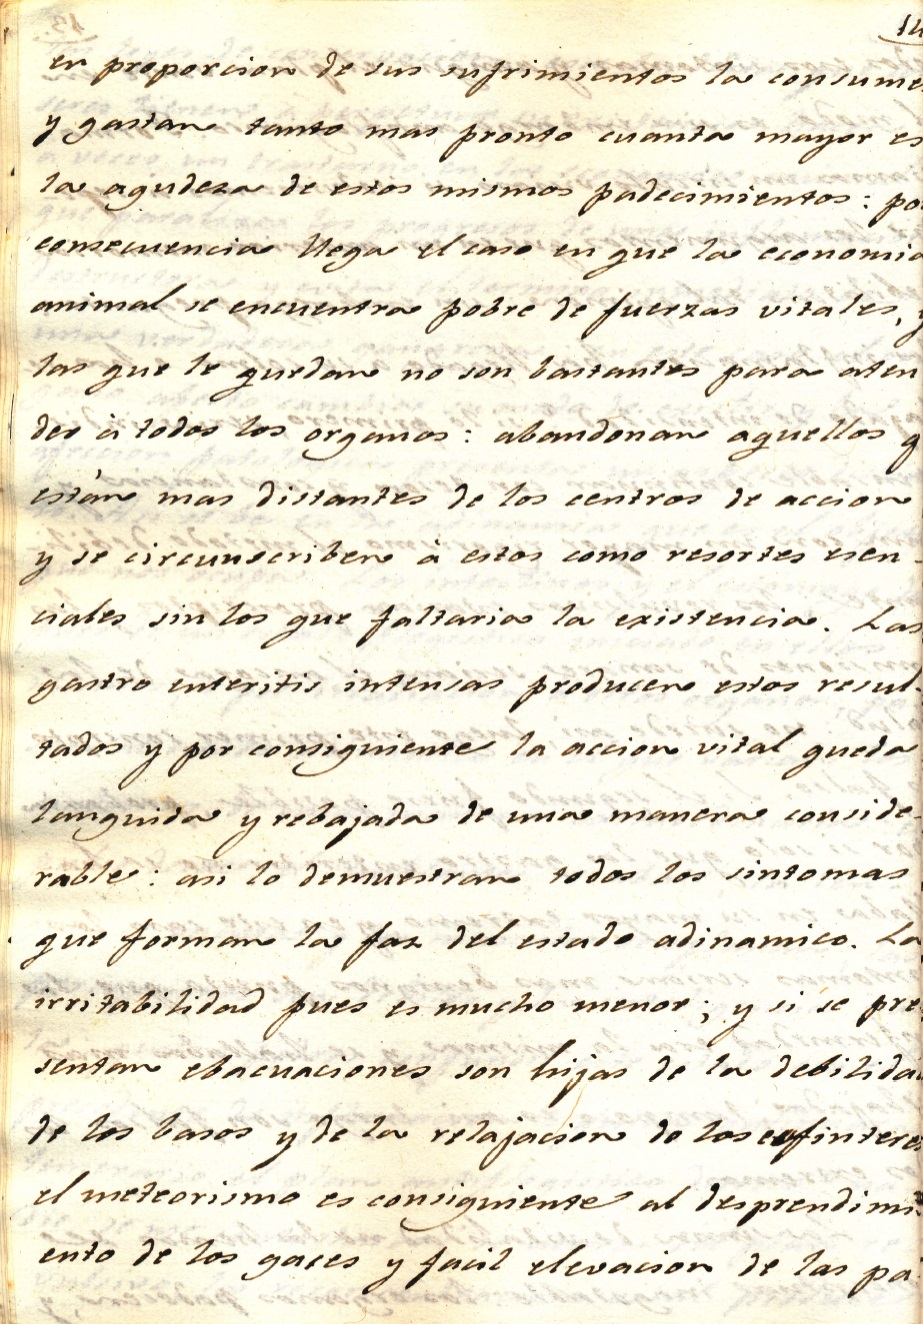 14
en proporcion de sus sufrimientos la consume
y gastan tanto mas pronto cuanta mayor es
la agudeza de estos mismos padecimientos: por
consecuencia llega el caso en que la economia
animal se encuentra pobre de fuerzas vitales, y
las que le quedan no son bastantes para aten
der à todos los organos: abandonan aquellos q
están mas distantes de los centros de accion
y se circunscriben à estos como resortes esen-
ciales sin los que faltaria la existencia. Las
gastro enteritis intensas producen estos resul
tados y por consiguiente la accion vital queda
languida y rebajada de una manera conside
rable: asi lo demuestran todos los sintomas
que forman la faz del estado adinamico. La
irritabilidad pues es mucho menor; y si se pre
sentan ebacuaciones son hijas de la debilidad
de los basos y de la relajacion de los esfinteres
el meteorismo es consiguiente al desprendimi
ento de los gaces y facil elevacion de las pa